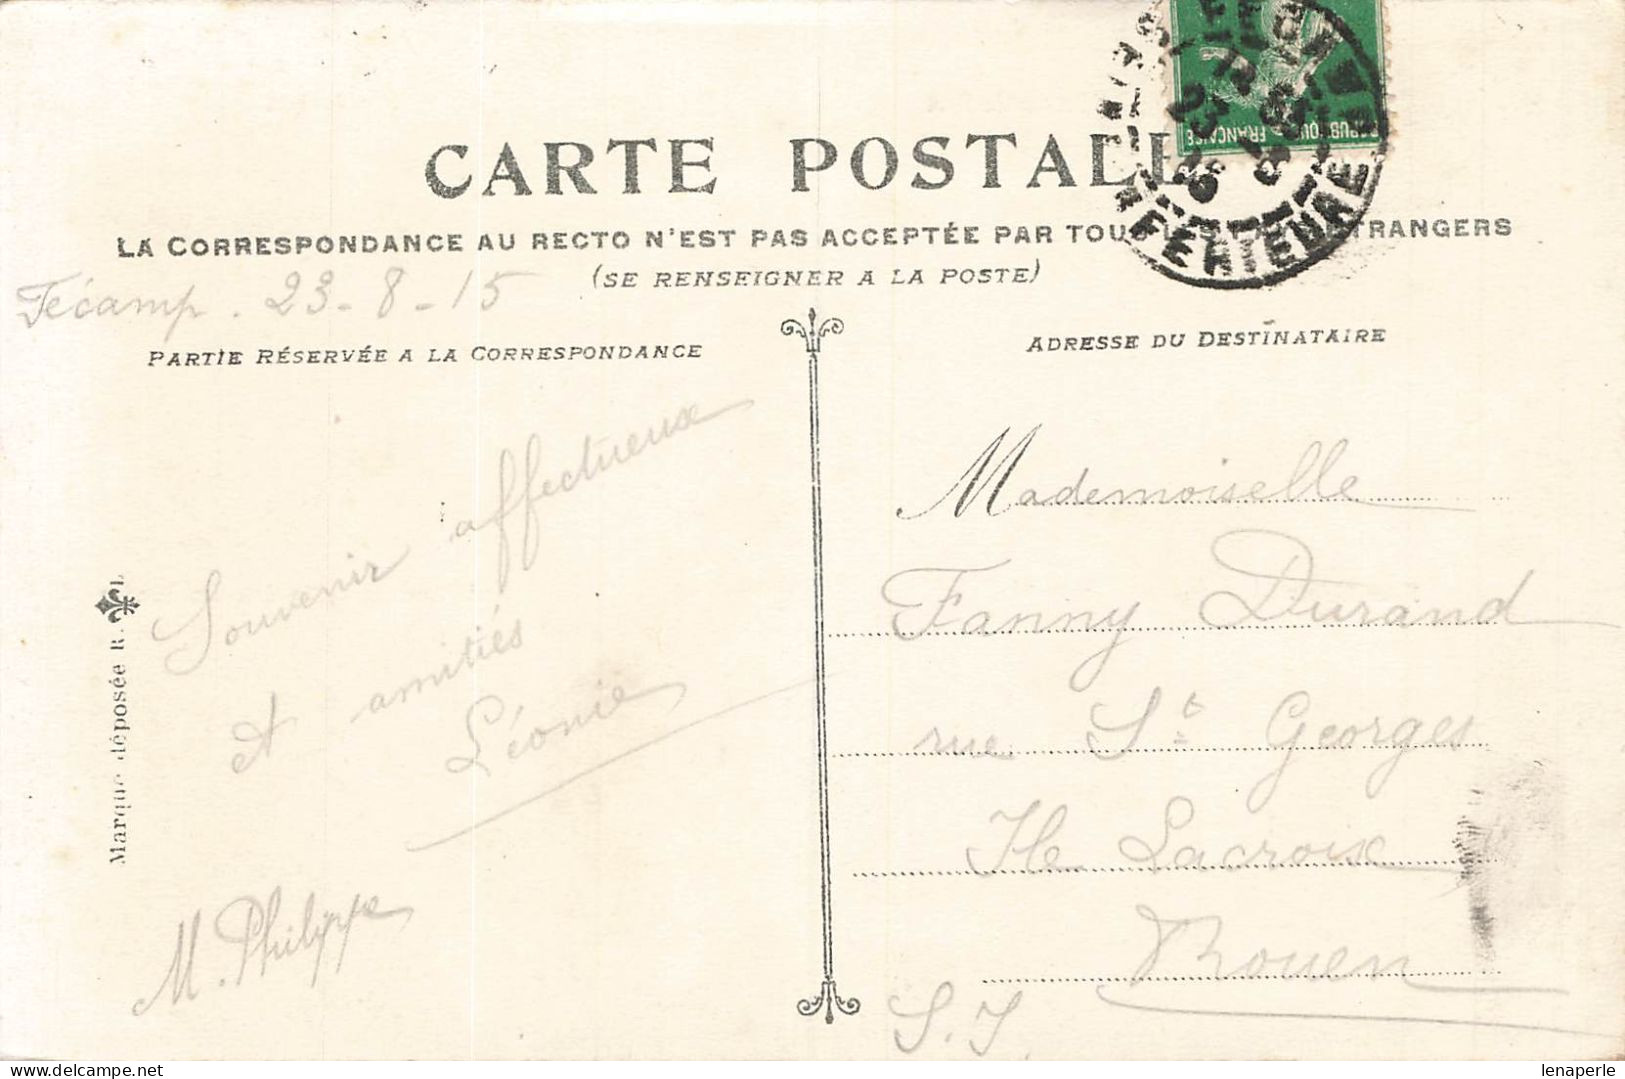 CARTE POSTALE
RÉPUBLIQUE FRANÇAISE
LA CORRESPONDANCE AU RECTO N'EST PAS ACCEPTÉE PAR TOUS LES ÉTRANGERS
(SE RENSEIGNER A LA POSTE)
Fécamp. 23-8-15
PARTIE RÉSERVÉE A LA CORRESPONDANCE
Souvenir affectueux
et amitiés
Léonie
M. Philippe
Marque déposée R. L
ADRESSE DU DESTINATAIRE
Mademoiselle
Fanny Durand
rue St Georges
Ile Lacroix
Rouen
S. I.
lenaperle